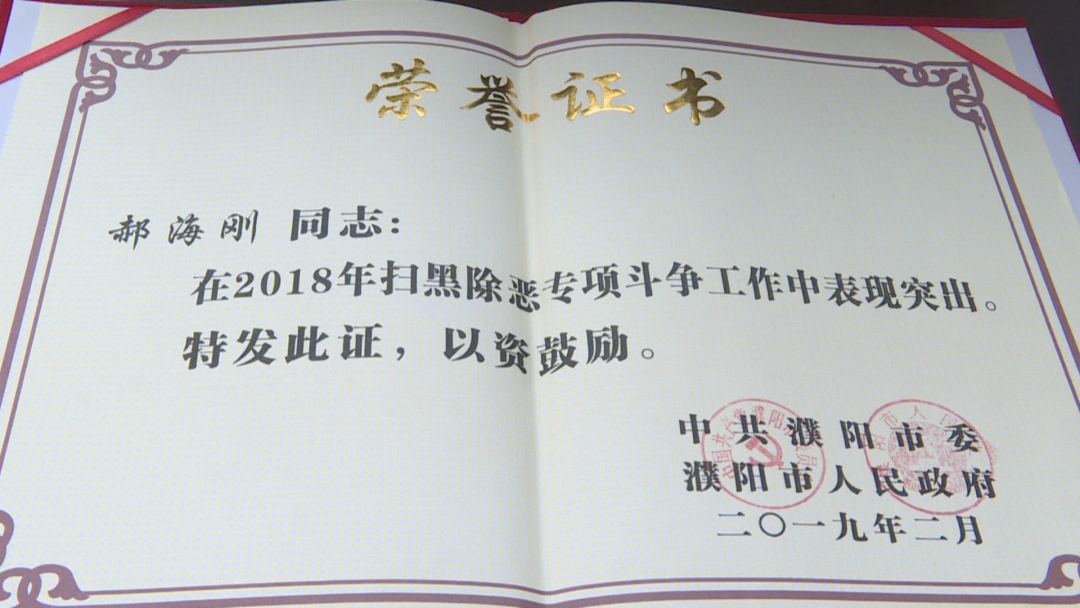 荣誉证书
郝海刚 同志：
在2018年扫黑除恶专项斗争工作中表现突出。
特发此证，以资鼓励。
中共濮阳市委
濮阳市人民政府
二〇一九年二月